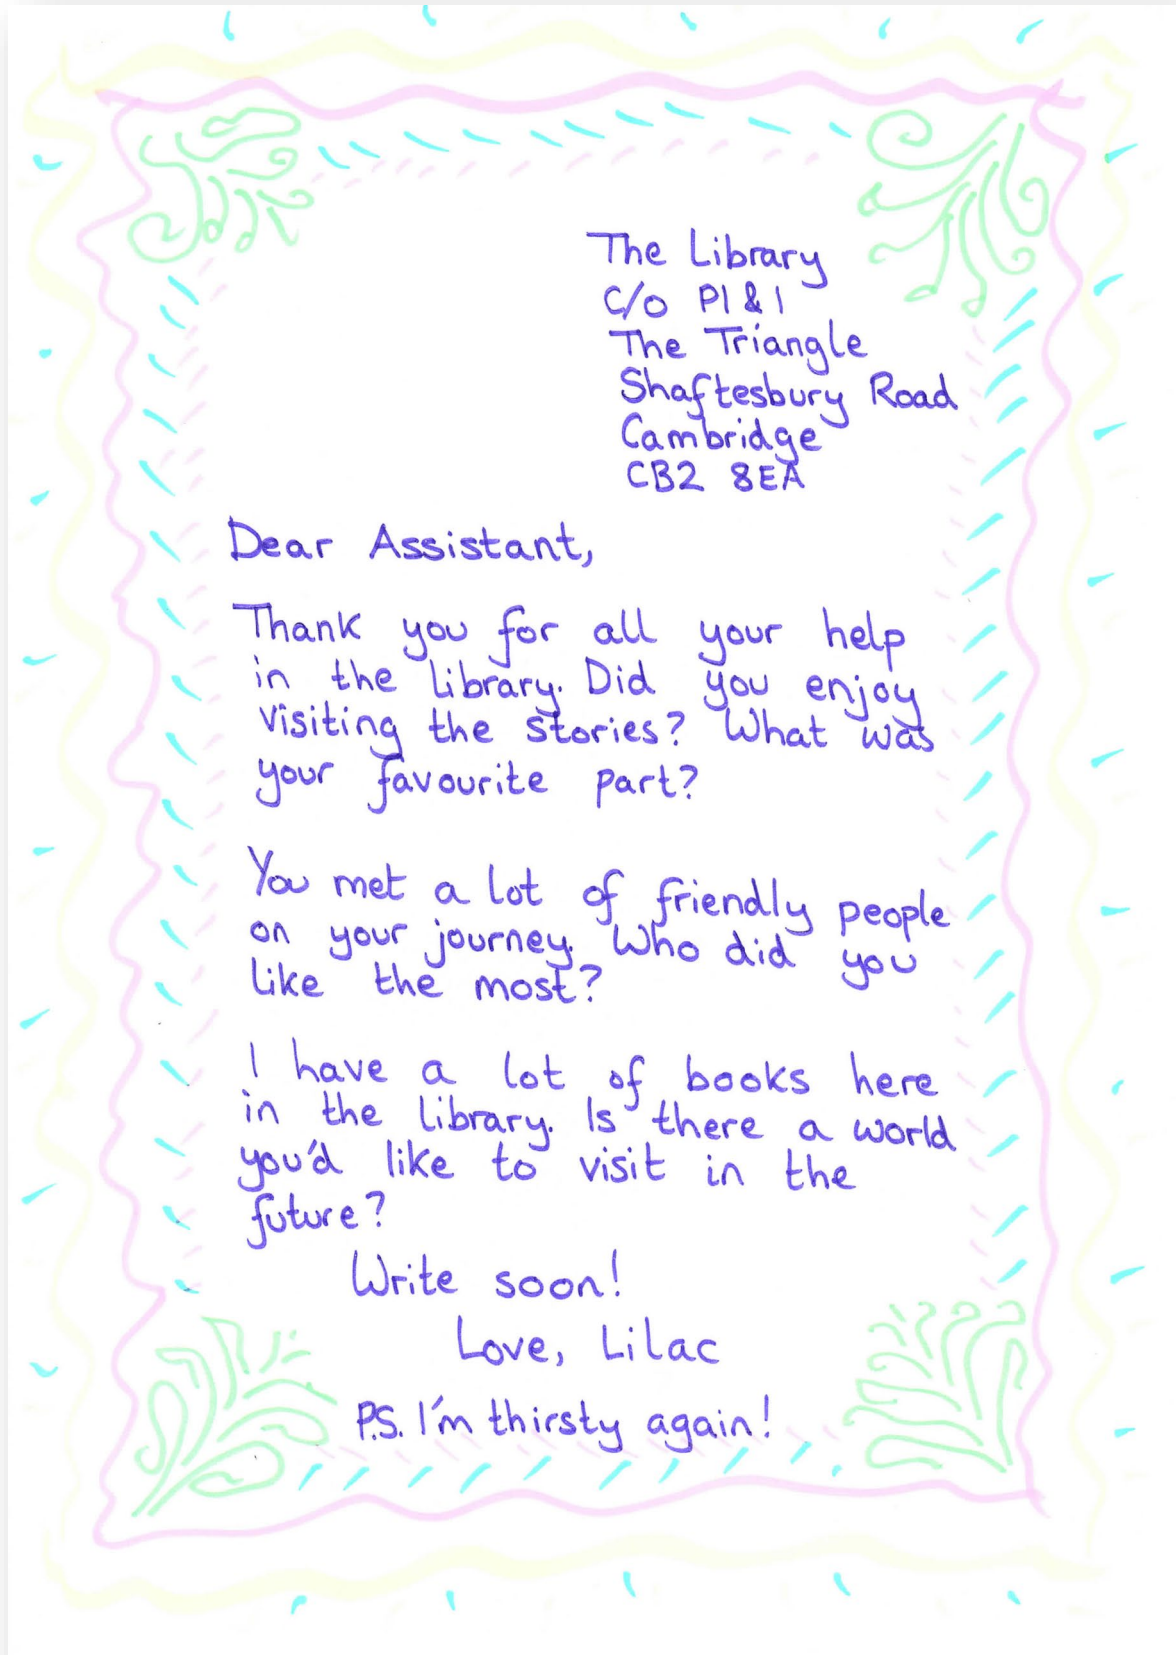 The Library
C/O P1 & 1
The Triangle
Shaftesbury Road
Cambridge
CB2 8EA
Dear Assistant,
Thank you for all your help
in the library. Did you enjoy
visiting the stories? What was
your favourite part?
You met a lot of friendly people
on your journey. Who did you
like the most?
I have a lot of books here
in the library. Is there a world
you'd like to visit in the
future?
Write soon!
Love, Lilac
P.S. I'm thirsty again!